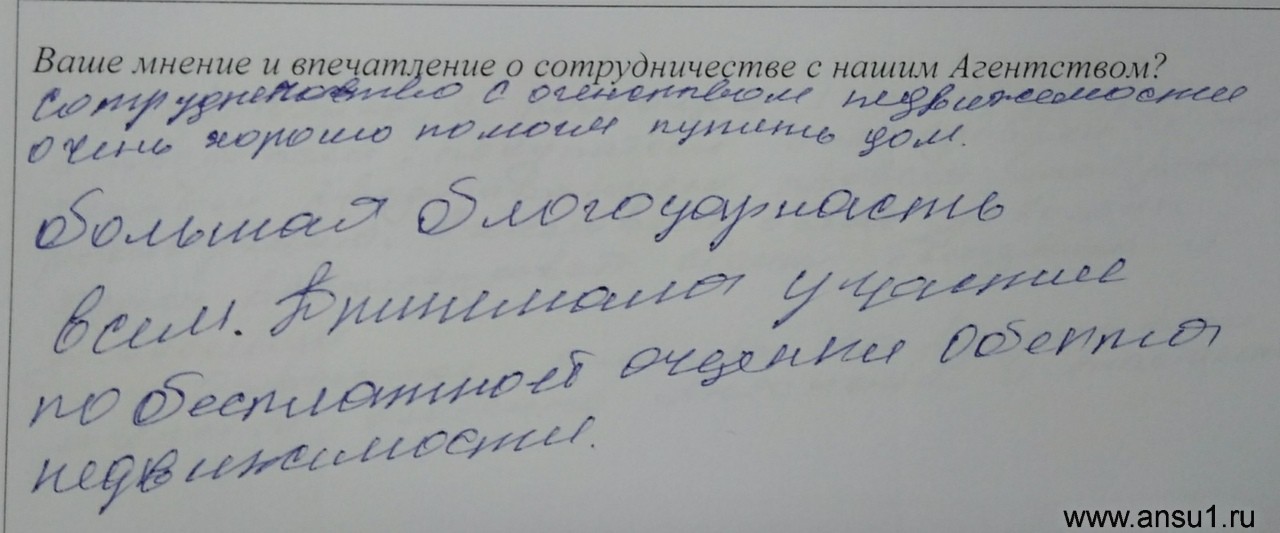 Ваше мнение и впечатление о сотрудничестве с нашим Агентством?
сотрудничество с огенством недвижемости
очень хорошо помогли купить дом.
большая благодарность
всем. Принимала участие
по бесплатной оценки обекта
недвижимости.
www.ansu1.ru